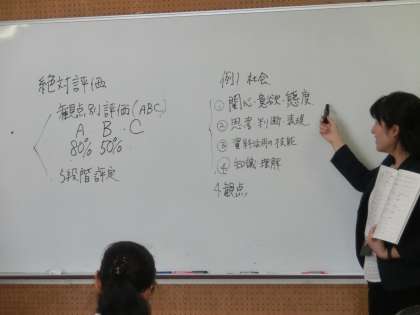 絶対評価
観点別評価(ABC)
A B・C
80% 50%
5段階評定
例) 社会
① 関心・意欲・態度
② 思考・判断・表現
③ 資料活用の技能
④ 知識・理解
4観点